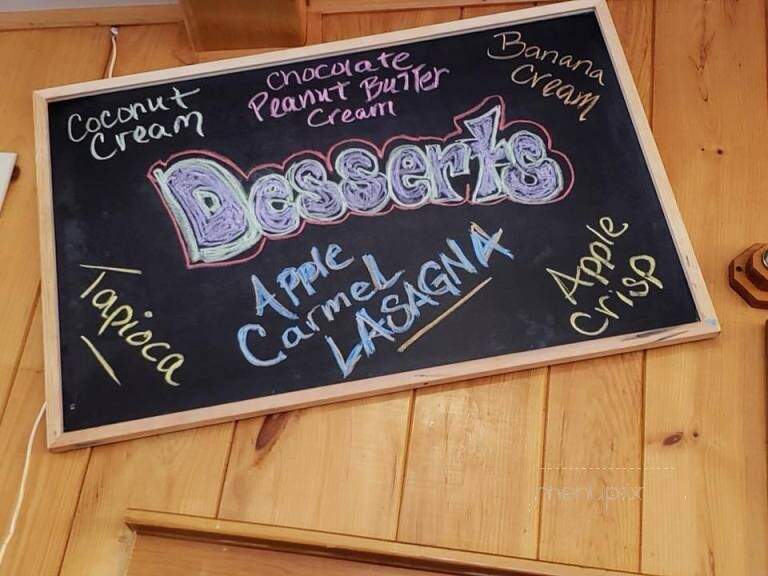 Coconut
Cream
Chocolate
Peanut Butter
Cream
Banana
Cream
Desserts
Tapioca
Apple
Carmel
LASAGNA
Apple
Crisp
menupix